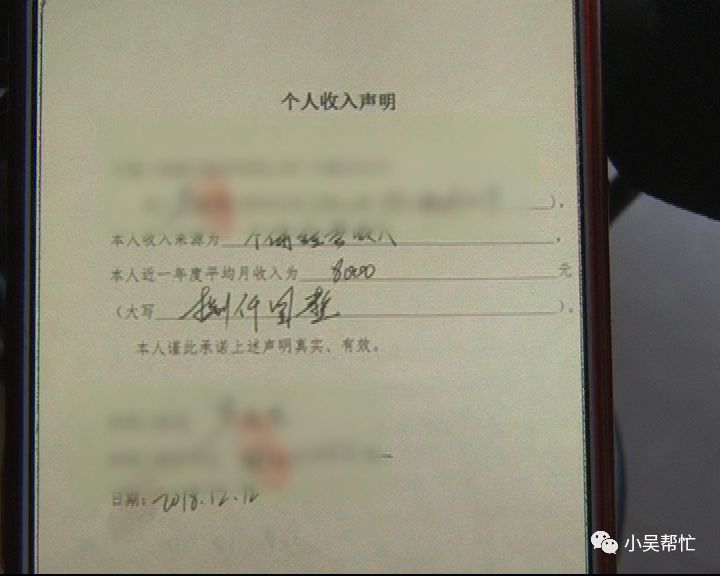 个人收入声明
）,
本人收入来源为 个体经营收入 ,
本人近一年度平均月收入为 8000 元
（大写 捌仟圆整 ）。
本人谨此承诺上述声明真实、有效。
日期：2018.12.12
小吴帮忙